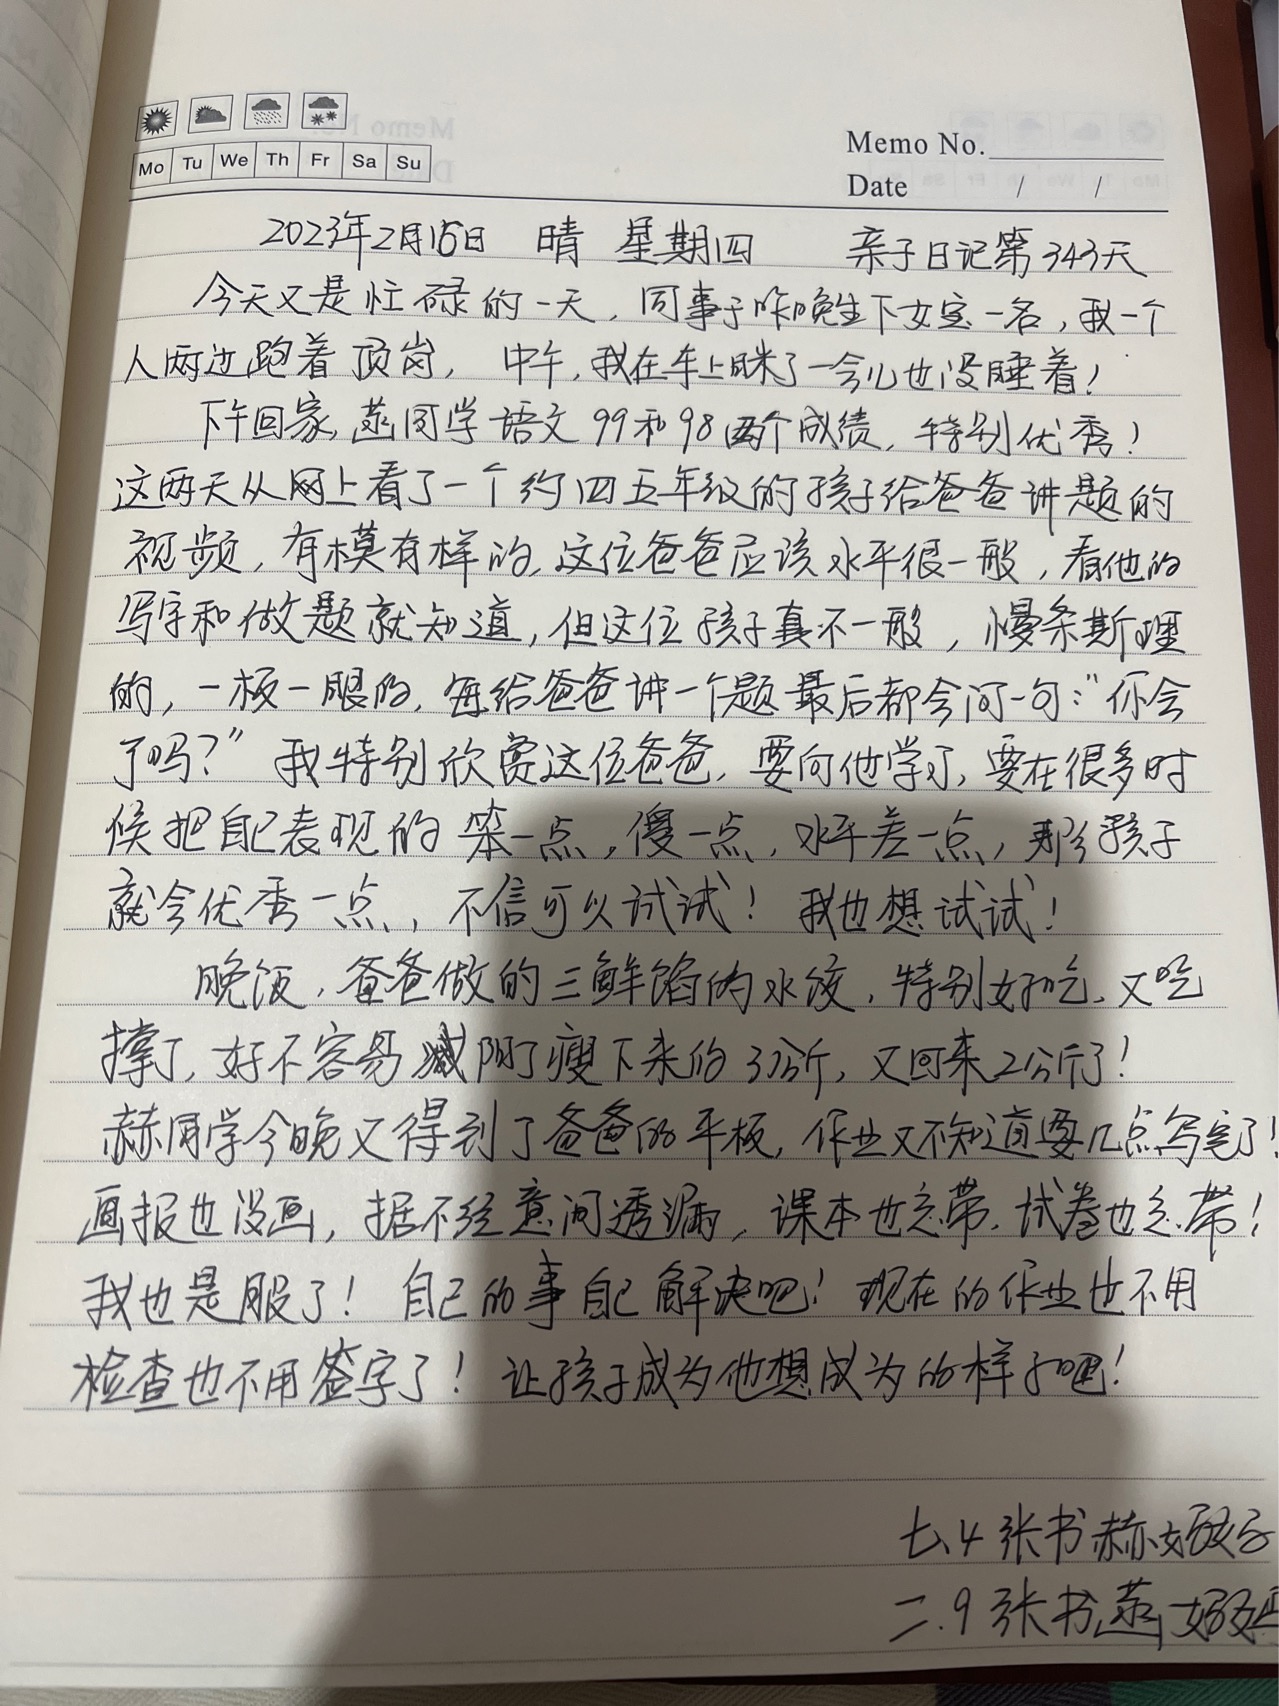 Mo Tu We Th Fr Sa Su
Memo No.
Date / /
2023年2月16日 晴 星期四 亲子日记第343天
今天又是忙碌的一天，同事于昨晚生下女宝一名，我一个
人两边跑着顶岗，中午，我在车上眯了一会儿也没睡着！
下午回家，菡同学语文99和98两个成绩，特别优秀！
这两天从网上看了一个约四五年级的孩子给爸爸讲题的
视频，有模有样的，这位爸爸应该水平很一般，看他的
写字和做题就知道，但这位孩子真不一般，慢条斯理
的，一板一眼的，每给爸爸讲一个题最后都会问一句：“你会
了吗？”我特别欣赏这位爸爸，要向他学习，要在很多时
候把自己表现的笨一点，傻一点，水平差一点，那孩子
就会优秀一点，不信可以试试！我也想试试！
晚饭，爸爸做的三鲜馅的水饺，特别好吃，又吃
撑了，好不容易减阳了瘦下来的3公斤，又回来2公斤了！
赫同学今晚又得到了爸爸的平板，作业又不知道要几点写完了！
画报也没画，据不经意间透漏，课本也忘带，试卷也忘带！
我也是服了！自己的事自己解决吧！现在的作业也不用
检查也不用签字了！让孩子成为他想成为的样子吧！
七.4张书赫妈妈
二.9张书菡妈妈